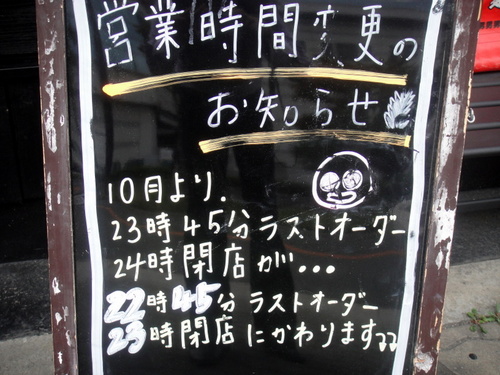 営業時間変更の
お知らせ
10月より.
23時45分ラストオーダー
24時閉店が...
22時45分ラストオーダー
23時閉店にかわります